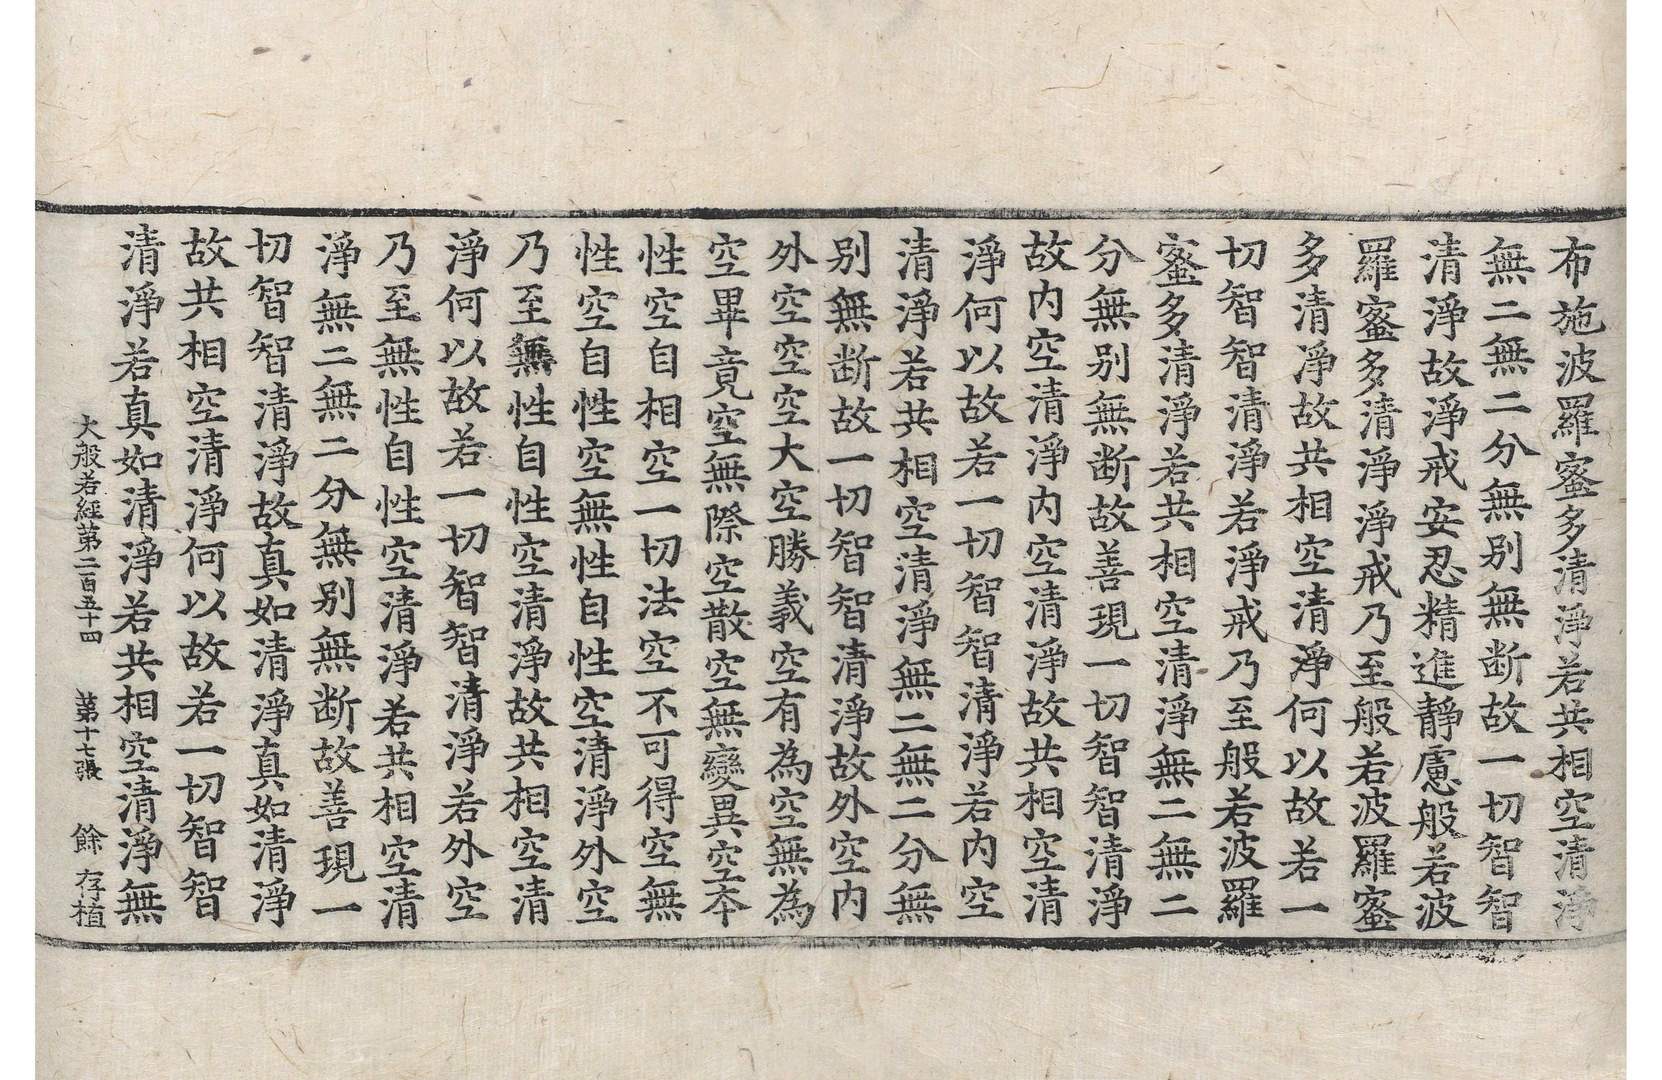 布施波羅蜜多清淨若共相空清淨
無二無二分無別無斷故一切智智
清淨故淨戒安忍精進靜慮般若波
羅蜜多清淨淨戒乃至般若波羅蜜
多清淨故共相空清淨何以故若一
切智智清淨若淨戒乃至般若波羅
蜜多清淨若共相空清淨無二無二
分無別無断故善現一切智智清淨
故内空清淨内空清淨故共相空清
淨何以故若一切智智清淨若内空
清淨若共相空清淨無二無二分無
別無断故一切智智清淨故外空内
外空空空大空勝義空有為空無為
空畢竟空無際空散空無變異空本
性空自相空一切法空不可得空無
性空自性空無性自性空清淨外空
乃至無性自性空清淨故共相空清
淨何以故若一切智智清淨若外空
乃至無性自性空清淨若共相空清
淨無二無二分無別無断故善現一
切智智清淨故真如清淨真如清淨
故共相空清淨何以故若一切智智
清淨若真如清淨若共相空清淨無
大般若經第二百五十四 第十七張 餘 存植